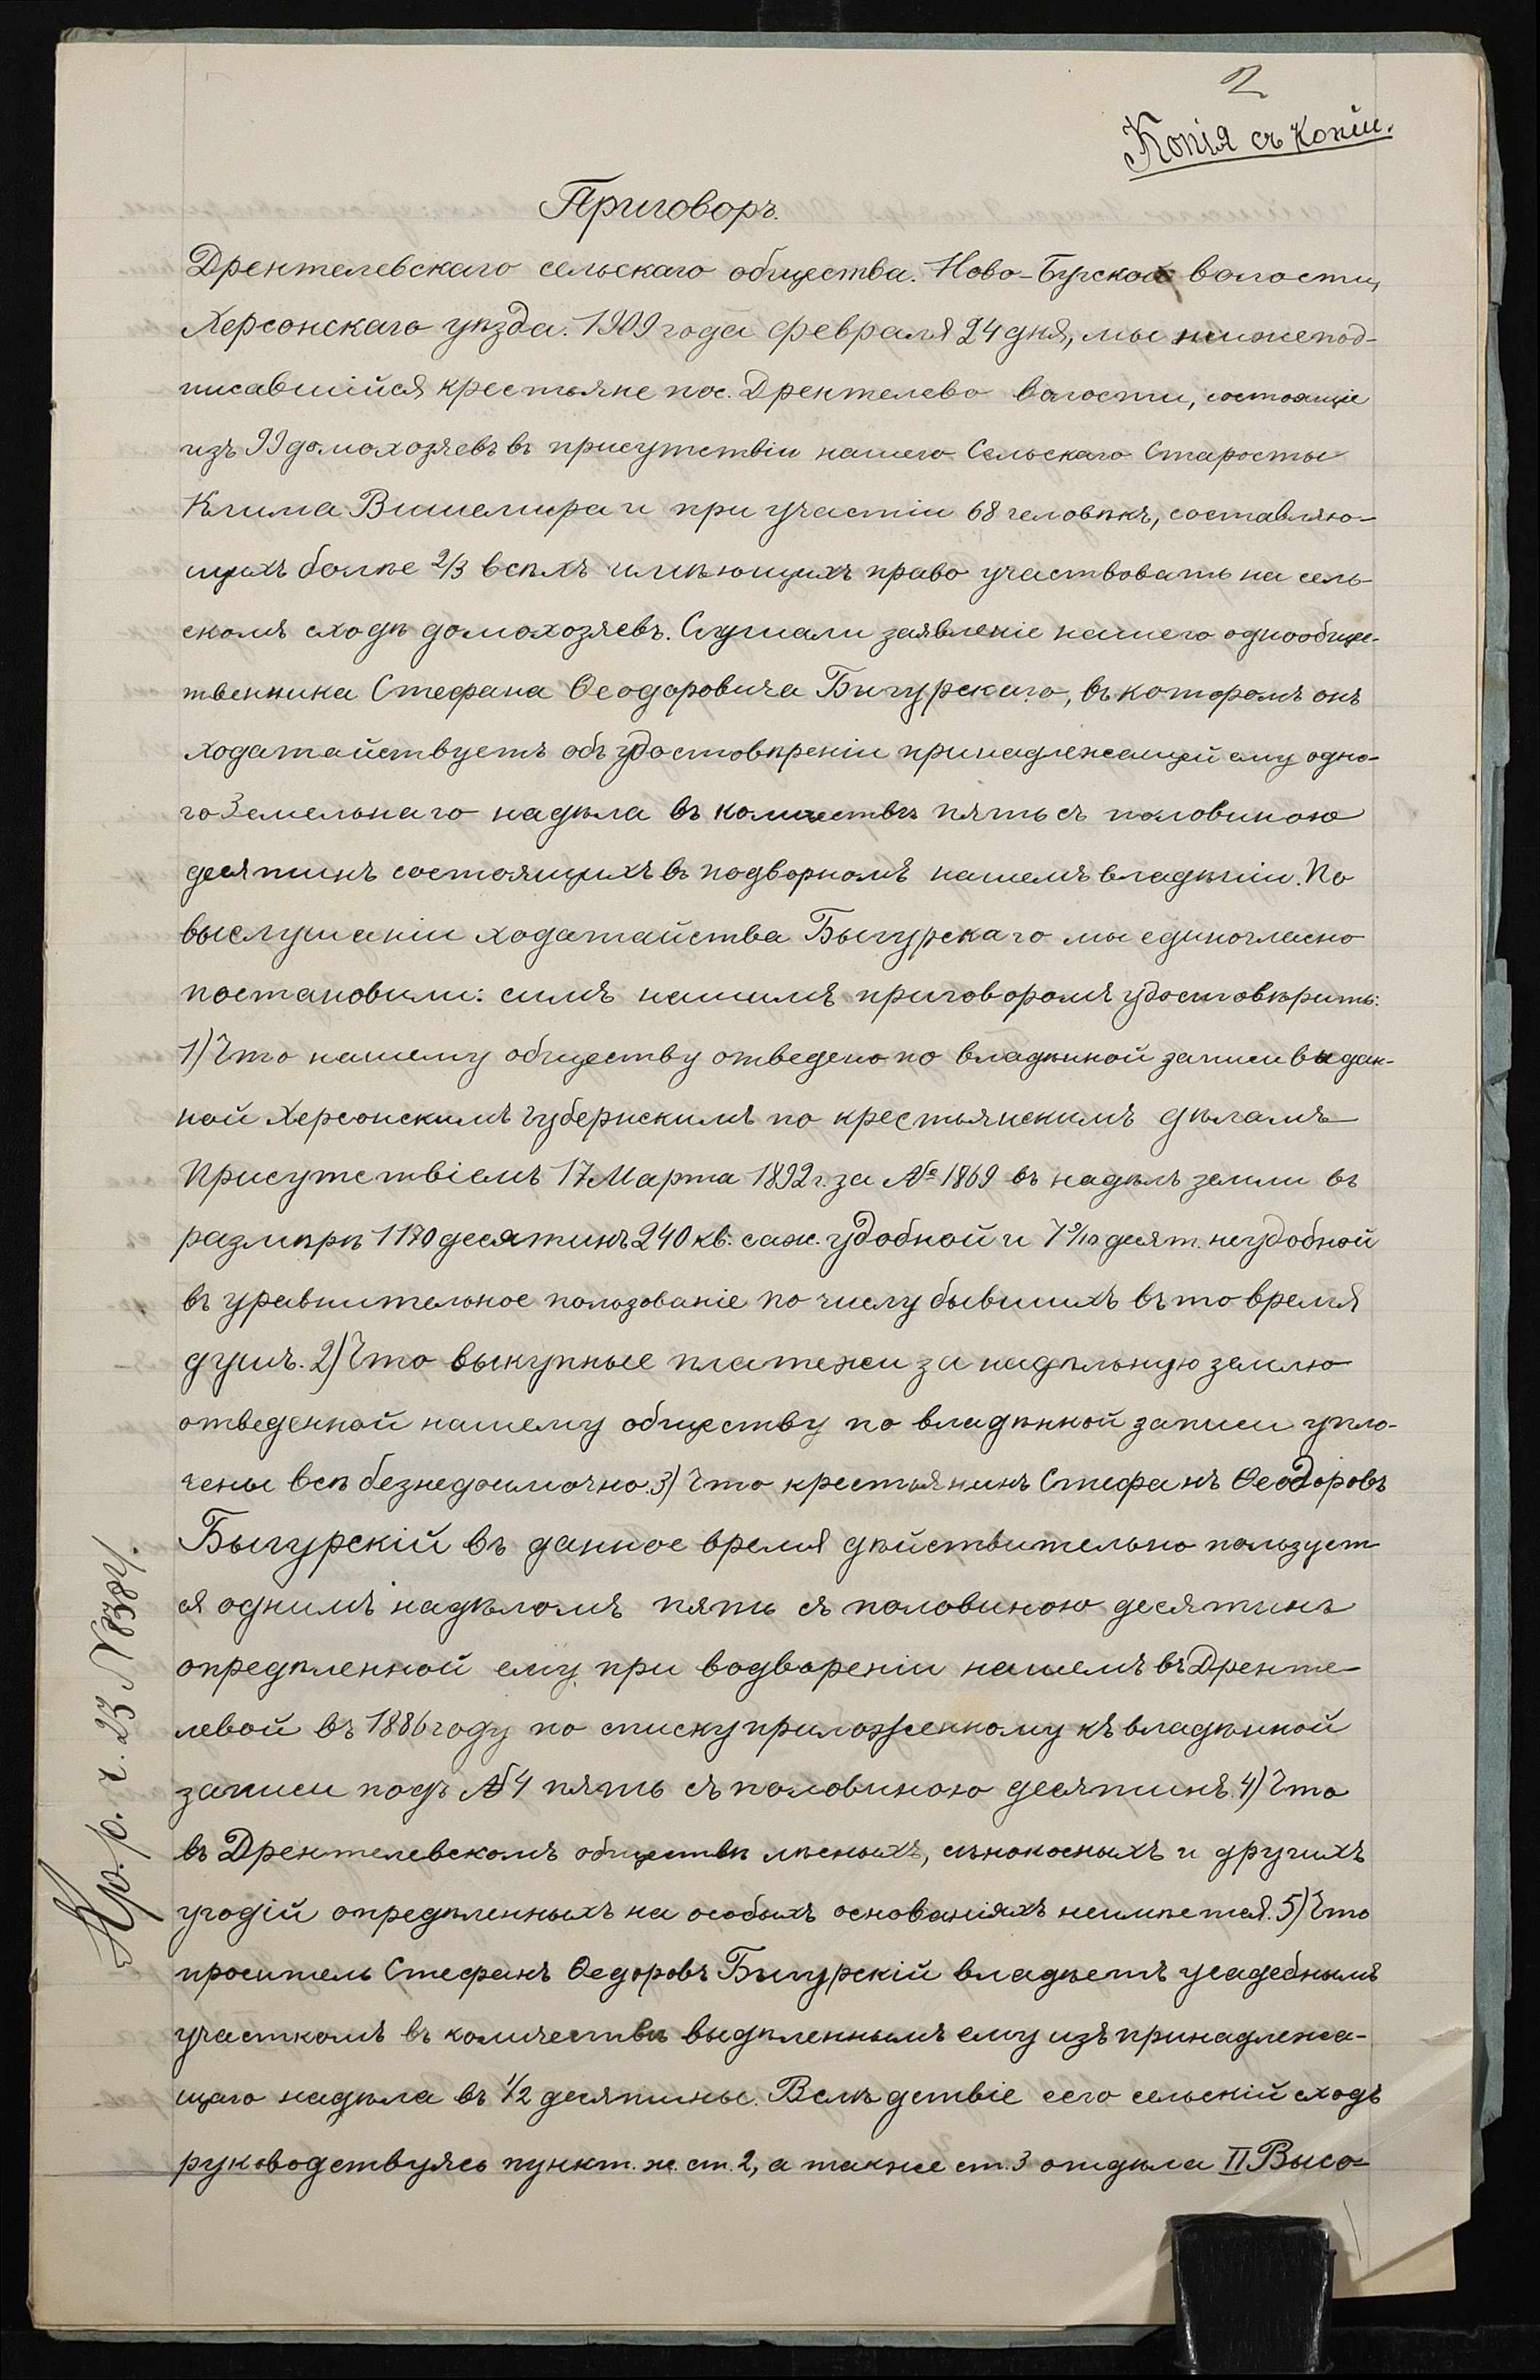 2
Копія съ копіи.
Приговоръ.
Дрентелевскаго сельскаго общества. Ново-Бугской волости,
Херсонскаго уѣзда. 1909 года февраля 24 дня, мы нижепод-
писавшійся крестьяне пос. Дрентелево волости, состоящіе
изъ 99 домохозяевъ въ присутствіи нашего Сельскаго Старосты
Клима и при участіи 68 человѣкъ, составляю-
щихъ болѣе 2/3 всѣхъ имѣющихъ право участвовать на сель-
скомъ сходѣ домохозяевъ. Слушали заявленіе нашего однообще-
твенника Стефана Ѳеодоровича Бигурскаго, въ которомъ онъ
ходатайствуетъ объ удостовѣреніи принадлежащей ему одно-
го Земельнаго надѣла въ количествѣ пять съ половиною
десятинъ состоящихъ въ подворномъ нашемъ владѣніи. По
выслушаніи ходатайства Быгурскаго мы единогласно
постановили: симъ нашимъ приговоромъ удостовѣрить:
1) Что нашему обществу отведено по владѣнной записи выдан-
ной Херсонскимъ Губернскимъ по крестьянскимъ дѣламъ
Присутствіемъ 17 Марта 1892 г. за № 1869 въ надѣлъ земли въ
размѣрѣ 1170 десятинъ 240 кв. саж. удобной и 7 9/10 десят. неудобной
въ уравнительное пользованіе по числу бывшихъ въ то время
душъ. 2) Что выкупные платежи за надѣльную землю
отведенной нашему обществу по владѣнной записи упло-
чены всѣ безнедоимочно. 3) Что крестьянинъ Стефанъ Ѳеодоровъ
Быгурскій въ данное время дѣйствительно пользует
ся однимъ надѣломъ пять съ половиною десятинъ
опредѣленной ему при водвореніи нашемъ въ Дренте-
левой въ 1886 году по списку приложенному къ владѣнной
записи подъ № 4 пять съ половиною десятинъ. 4) Что
въ Дрентелевскомъ обществѣ лѣсныхъ, сѣнокосныхъ и другихъ
угодій опредѣленныхъ на особыхъ основаніяхъ неимѣется. 5) Что
проситель Стефанъ Ѳедоровъ Быгурскій владѣетъ усадебнымъ
участкомъ въ количествѣ выдѣленнымъ ему изъ принадлежа-
щаго надѣла въ 1/2 десятины. Вслѣдствіе сего сельскій сходъ
руководствуясь пункт. ж. ст. 2, а также ст. 3 отдѣла II Высо-